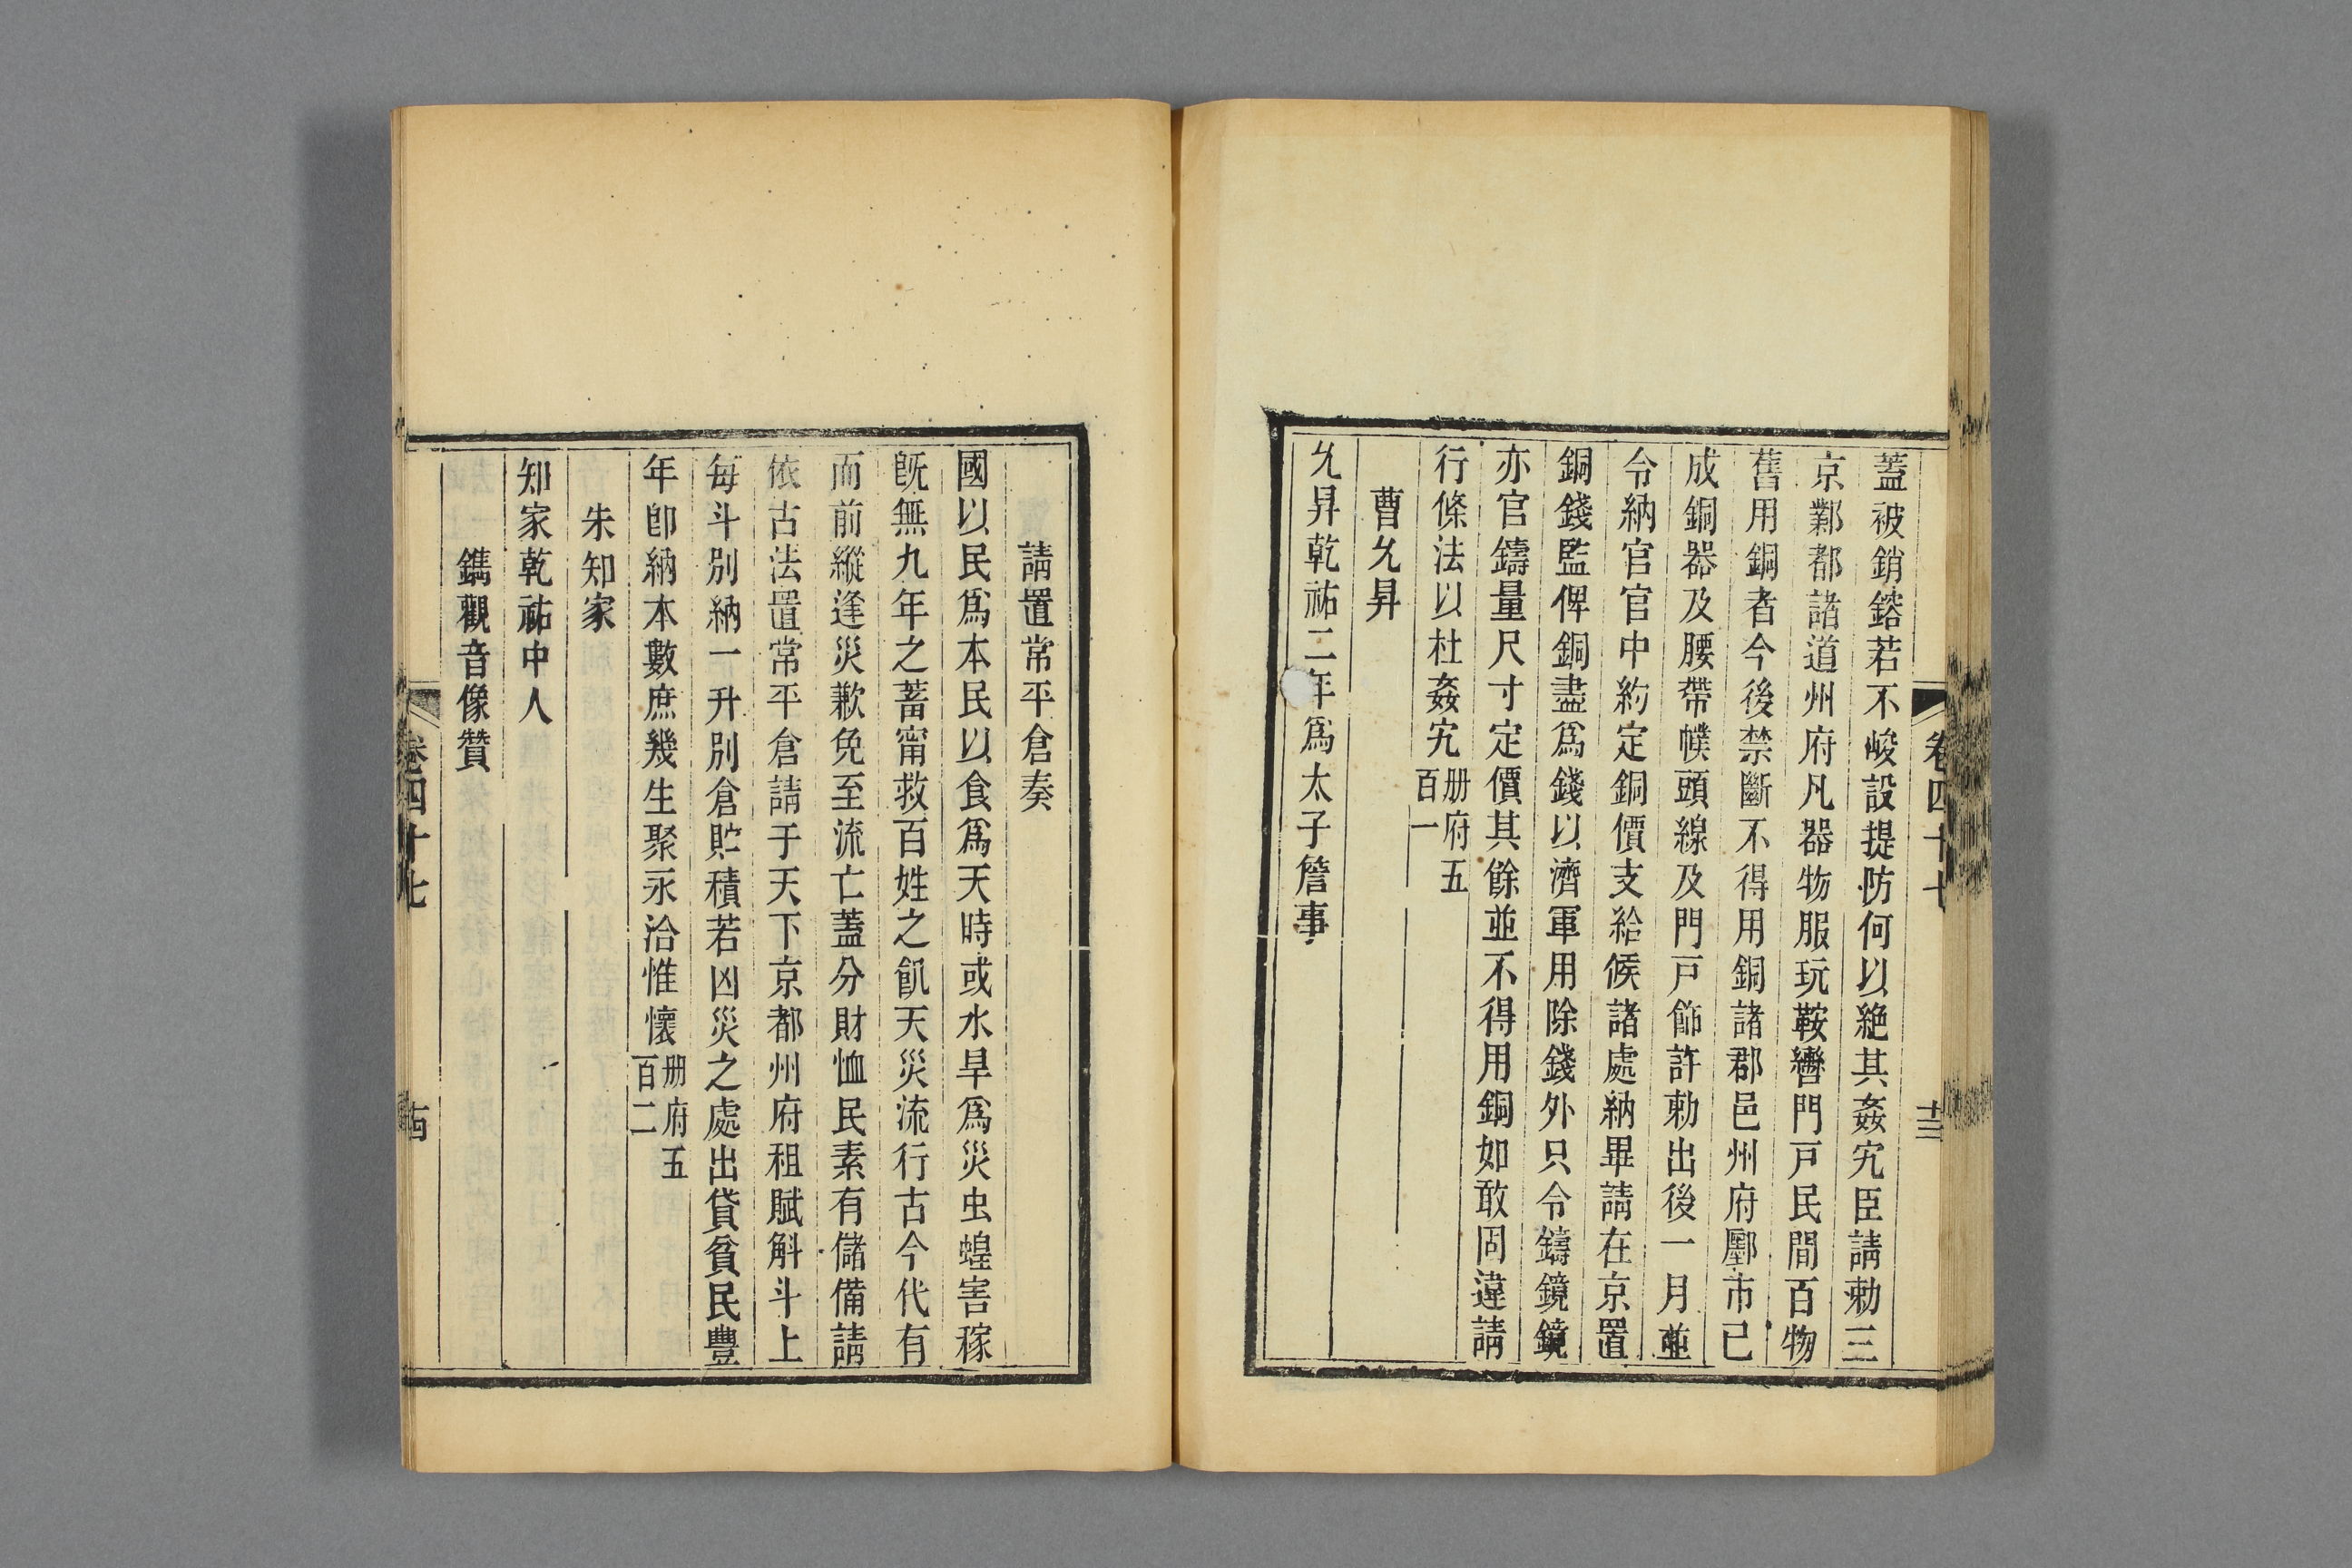 卷四十七
十三
蓋被銷鎔若不峻設提防何以絶其姦宄臣請勅三
京鄴都諸道州府凡器物服玩鞍轡門戸民間百物
舊用銅者今後禁斷不得用銅諸郡邑州府鄽市已
成銅器及腰帶幞頭線及門戸飾許勅出後一月並
令納官官中約定銅價支給候諸處納畢請在京置
銅錢監俾銅盡爲錢以濟軍用除錢外只令鑄鏡鏡
亦官鑄量尺寸定價其餘並不得用銅如敢固違請
行條法以杜姦宄册府五百一
曹允昇
允昇乾祐二年爲太子詹事
請置常平倉奏
國以民爲本民以食爲天時或水旱爲災虫蝗害稼
旣無九年之蓄甯救百姓之飢天災流行古今代有
而前縱逢災歉免至流亡蓋分財恤民素有儲備請
依古法置常平倉請于天下京都州府租賦斛斗上
每斗別納一升別倉貯積若凶災之處出貸貧民豐
年卽納本數庶幾生聚永洽惟懷册府五百二
朱知家
知家乾祐中人
鐫觀音像贊
卷四十七
十四